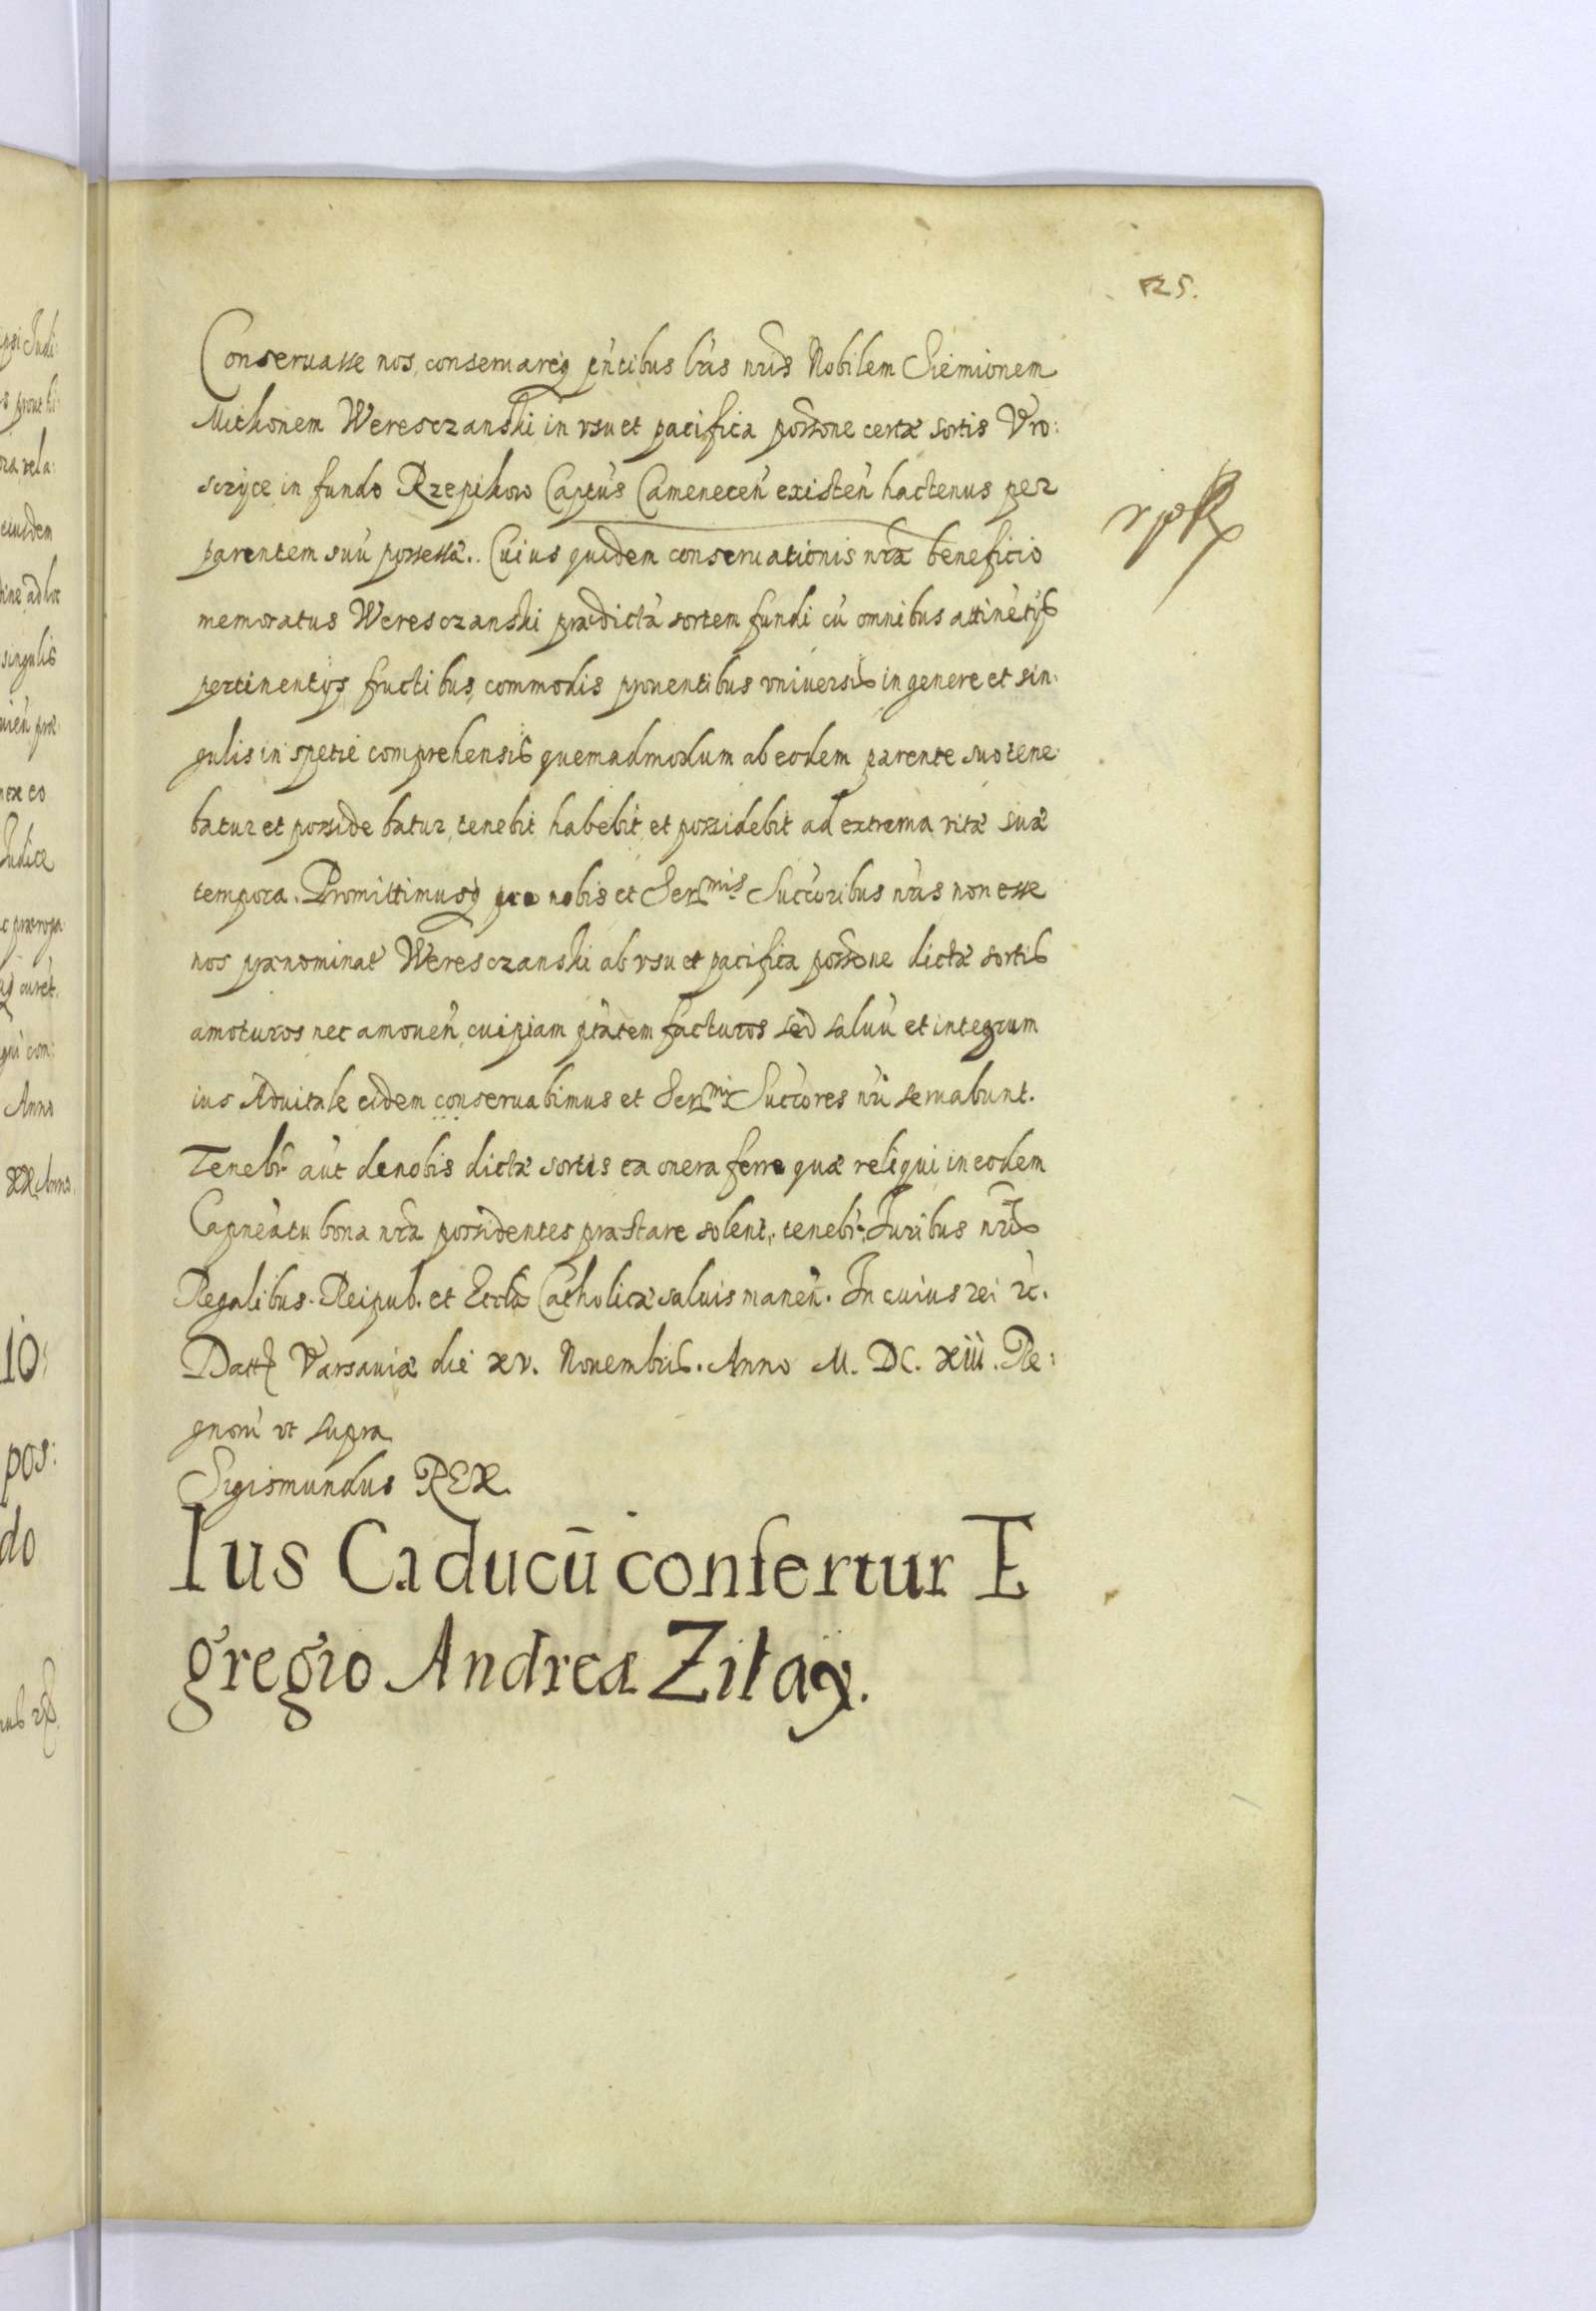 125.
Conseruasse nos, conseruareq pñtibus lris nris Nobilem Siemionem
Michonem Weresczanski in vsu et pacifica possone certæ sortis Vro:
sczyce in fundo Rzepikow Captus Camenecen existen hactenus per
parentem suũ possessæ.. Cuius quidem conseruationis nræ beneficio
memoratus Weresczanski prædictã sortem fundi cũ omnibus attinẽtijs
pertinentijs, fructibus, commodis prouentibus vniuersis in genere et sin:
gulis in spetie comprehensis quemadmodum ab eodem parente suo tene
batur et posside batur, tenebit habebit et possidebit ad extrema vitæ suæ
tempora. Promittimusq pro nobis et Sermis Succoribus nris non esse
nos prænominat Weresczanski ab vsu et pacifica possone dictæ sortis
amoturos nec amouen cuipiam ptãtem facturos sed saluũ et integrum
ius Aduitale eidem conseruabimus et Sermi Succores nri seruabunt.
Tenebr aũt de nobis dictæ sortis ea onera ferre quæ reliqui in eodem
Capneatu bona nra possidentes præstare solent, tenebr. Iuribus nris
Regalibus. Reipub. et Ecclæ Catholicæ saluis manen. In cuius rei rc.
Datt Varsauiæ die xv. Nouembris. Anno M. DC. xiii. Re:
gnorũ vt supra
Sigismundus REX.
Ius Caducũ confertur E
gregio Andreæ Zitay.